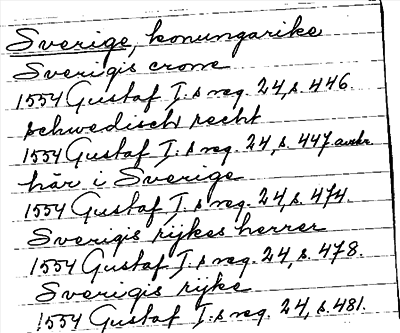 Sverige, konungarike
Sverigis crone
1554 Gustaf I:s reg. 24, s. 446.
schwedisch recht
1554 Gustaf I:s reg. 24, s. 447 avskr
här i Sverige
1554 Gustaf I:s reg. 24, s. 474.
Sverigis rijkes herrer
1554 Gustaf I:s reg. 24, s. 478.
Sverigis rijke
1554 Gustaf I:s reg. 24, s. 481.